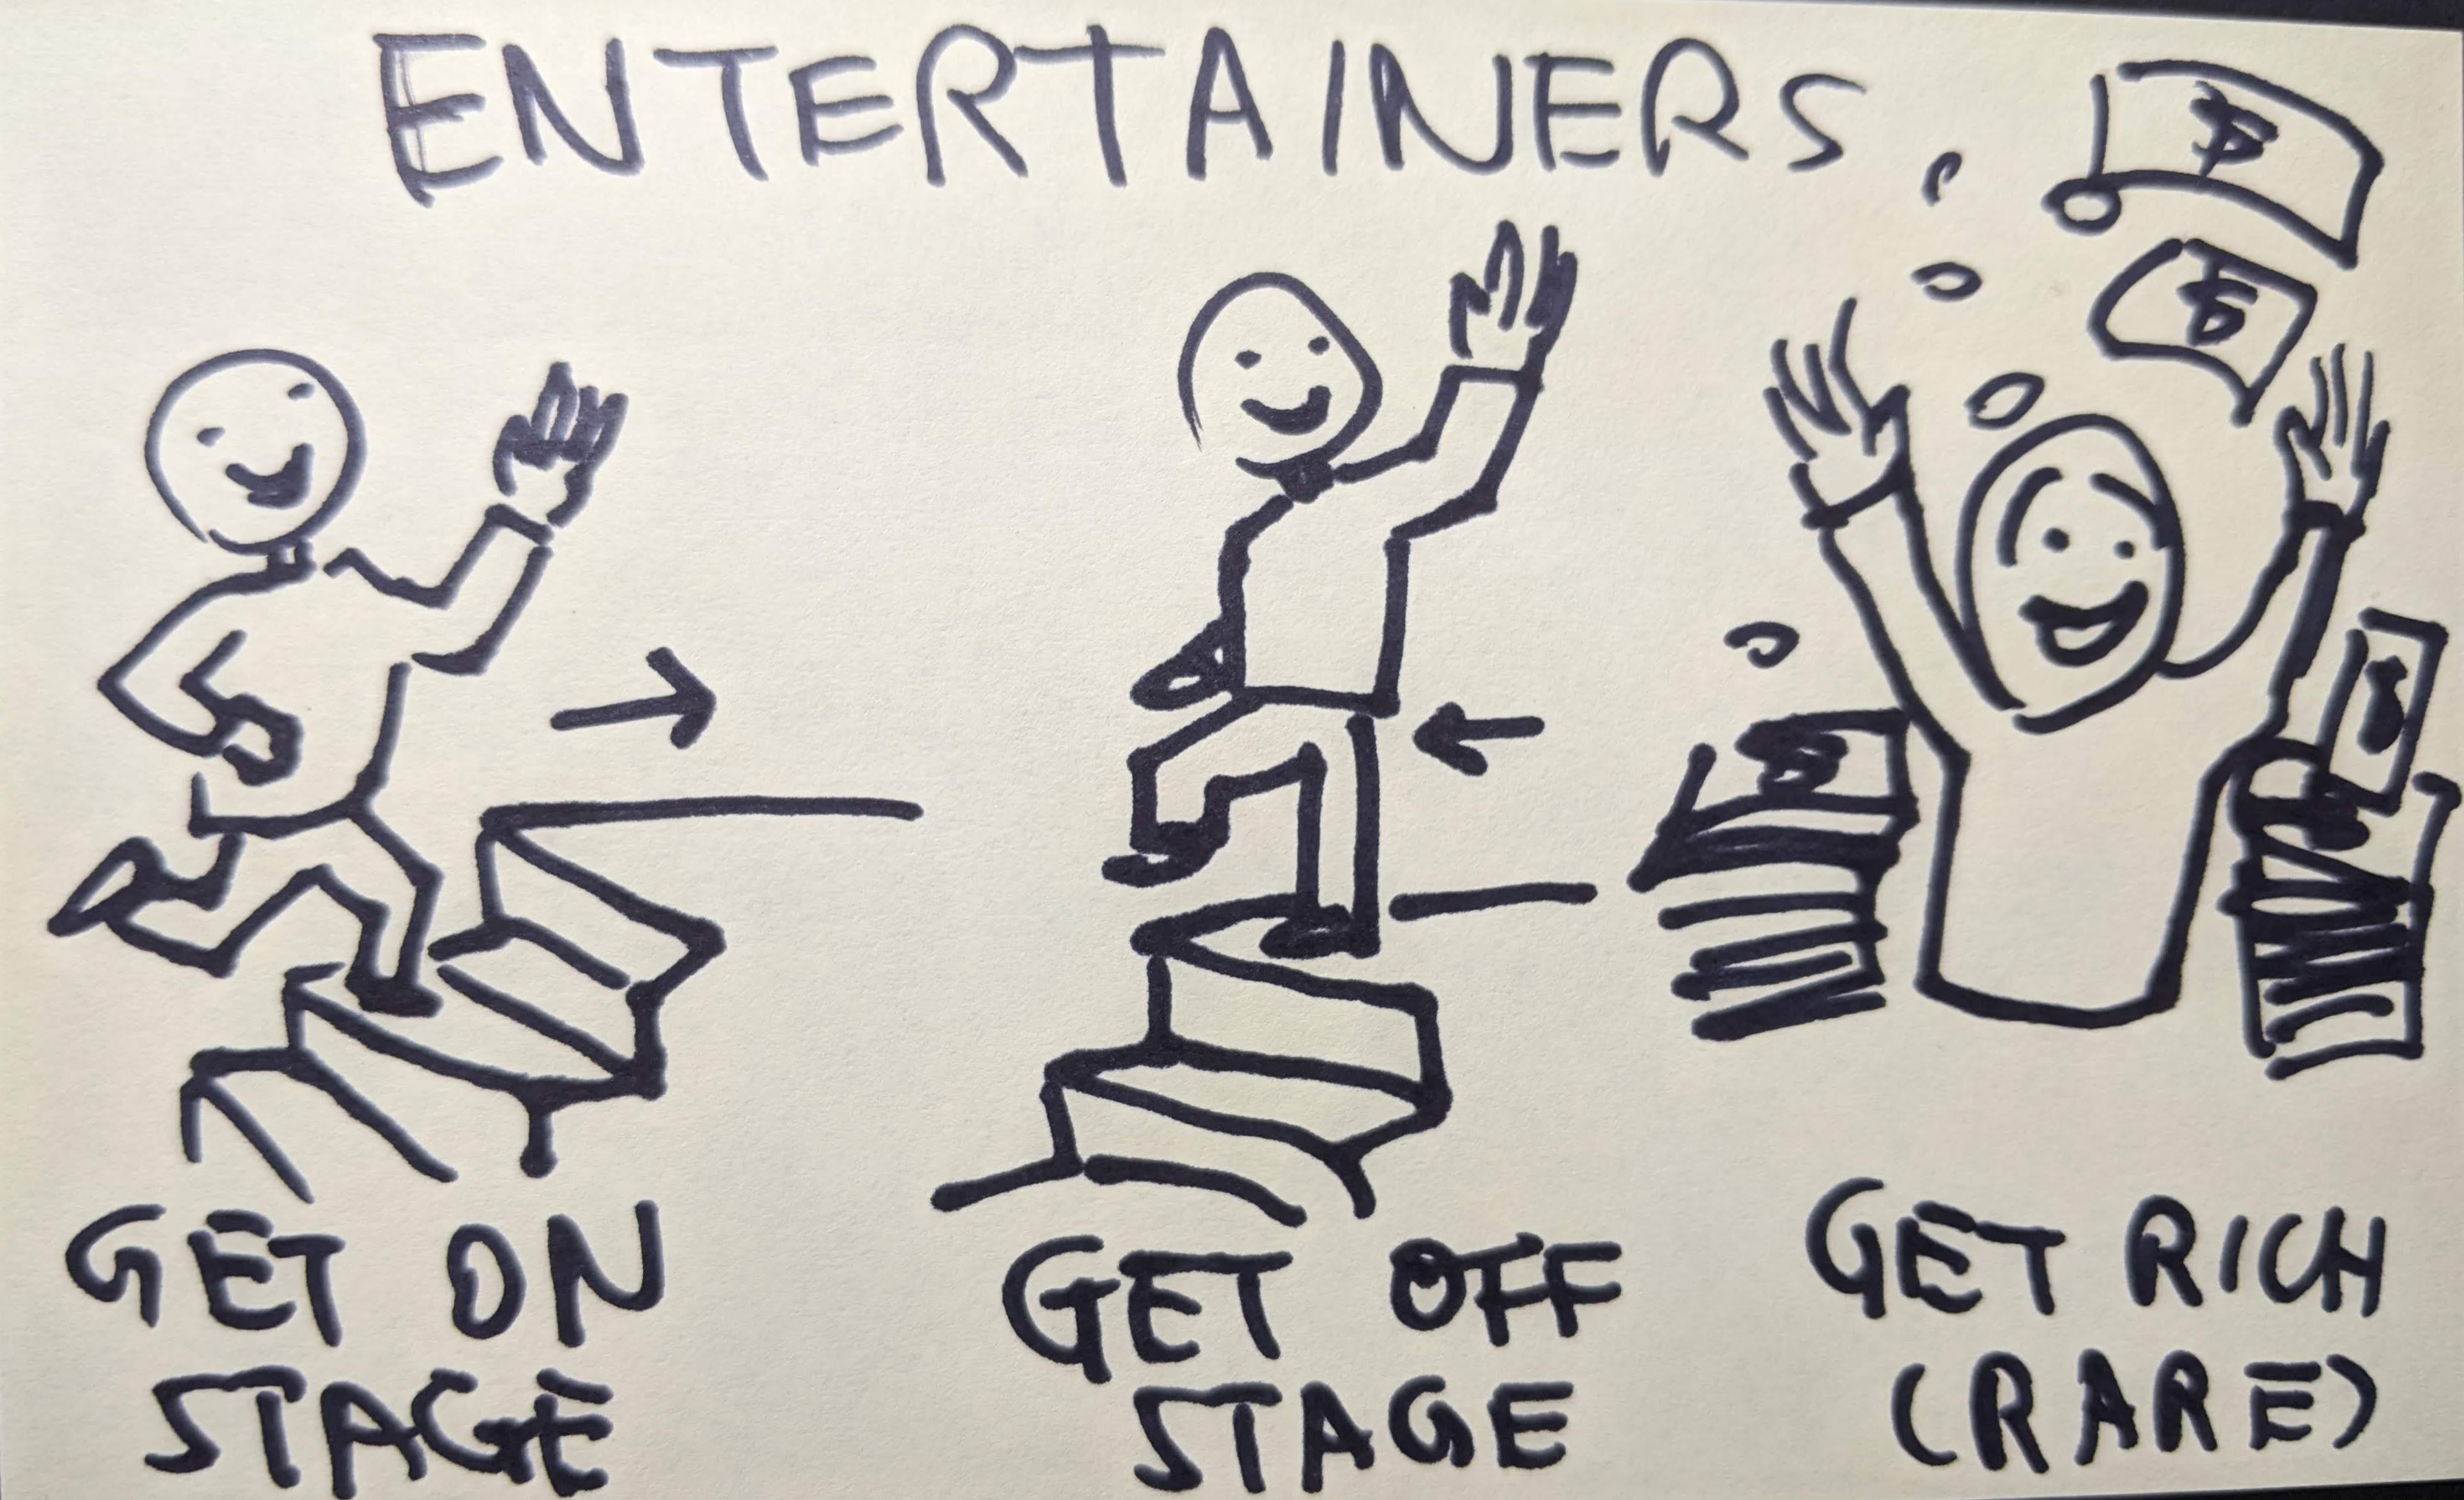 ENTERTAINERS.
GET ON
STAGE
GET OFF
STAGE
GET RICH
(RARE)